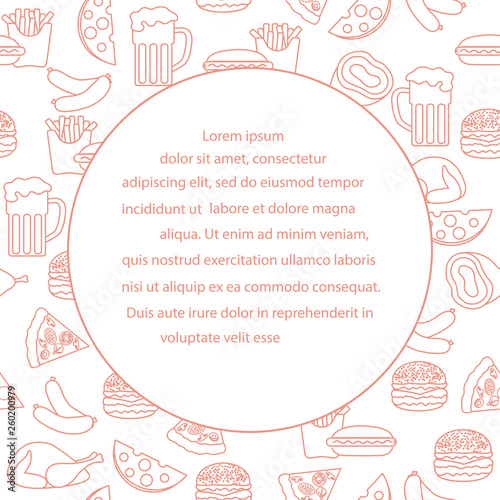 Lorem ipsum
dolor sit amet, consectetur
adipiscing elit, sed do eiusmod tempor
incididunt ut labore et dolore magna
aliqua. Ut enim ad minim veniam,
quis nostrud exercitation ullamco laboris
nisi ut aliquip ex ea commodo consequat.
Duis aute irure dolor in reprehenderit in
voluptate velit esse
Adobe Stock | #260200979